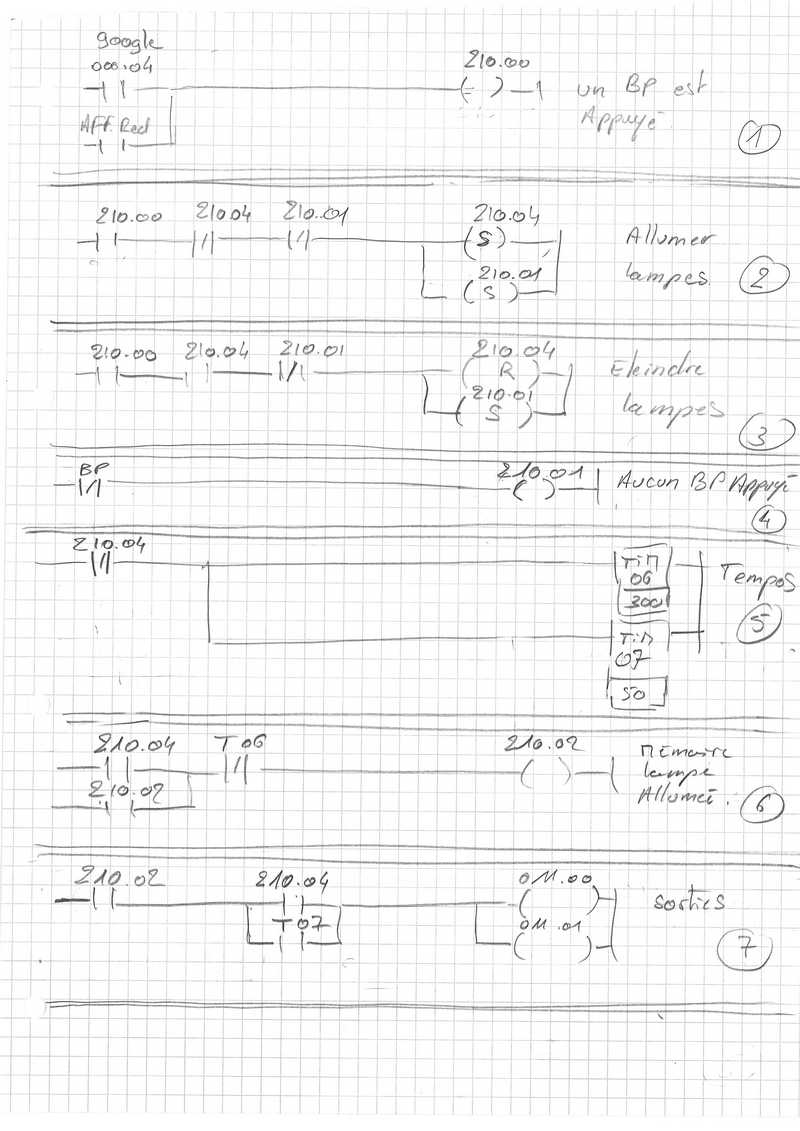 google
000.04
210.00
( = )
un BP est
Appuyé
AFF. Red
1
210.00 210.04 210.01
210.04
(S)
Allumer
210.01
(S)
lampes
2
210.00 210.04 210.01
210.04
( R )
Eteindre
210.01
( S )
lampes
3
BP
210.01
Aucun BP Appuyé
4
210.04
TiM
06
300
Tempos
5
TiM
07
50
210.04 T 06
210.02
Mémoire
lampe
210.02
Allumeé.
6
210.02 210.04
011.00
sorties
T 07
011.01
7